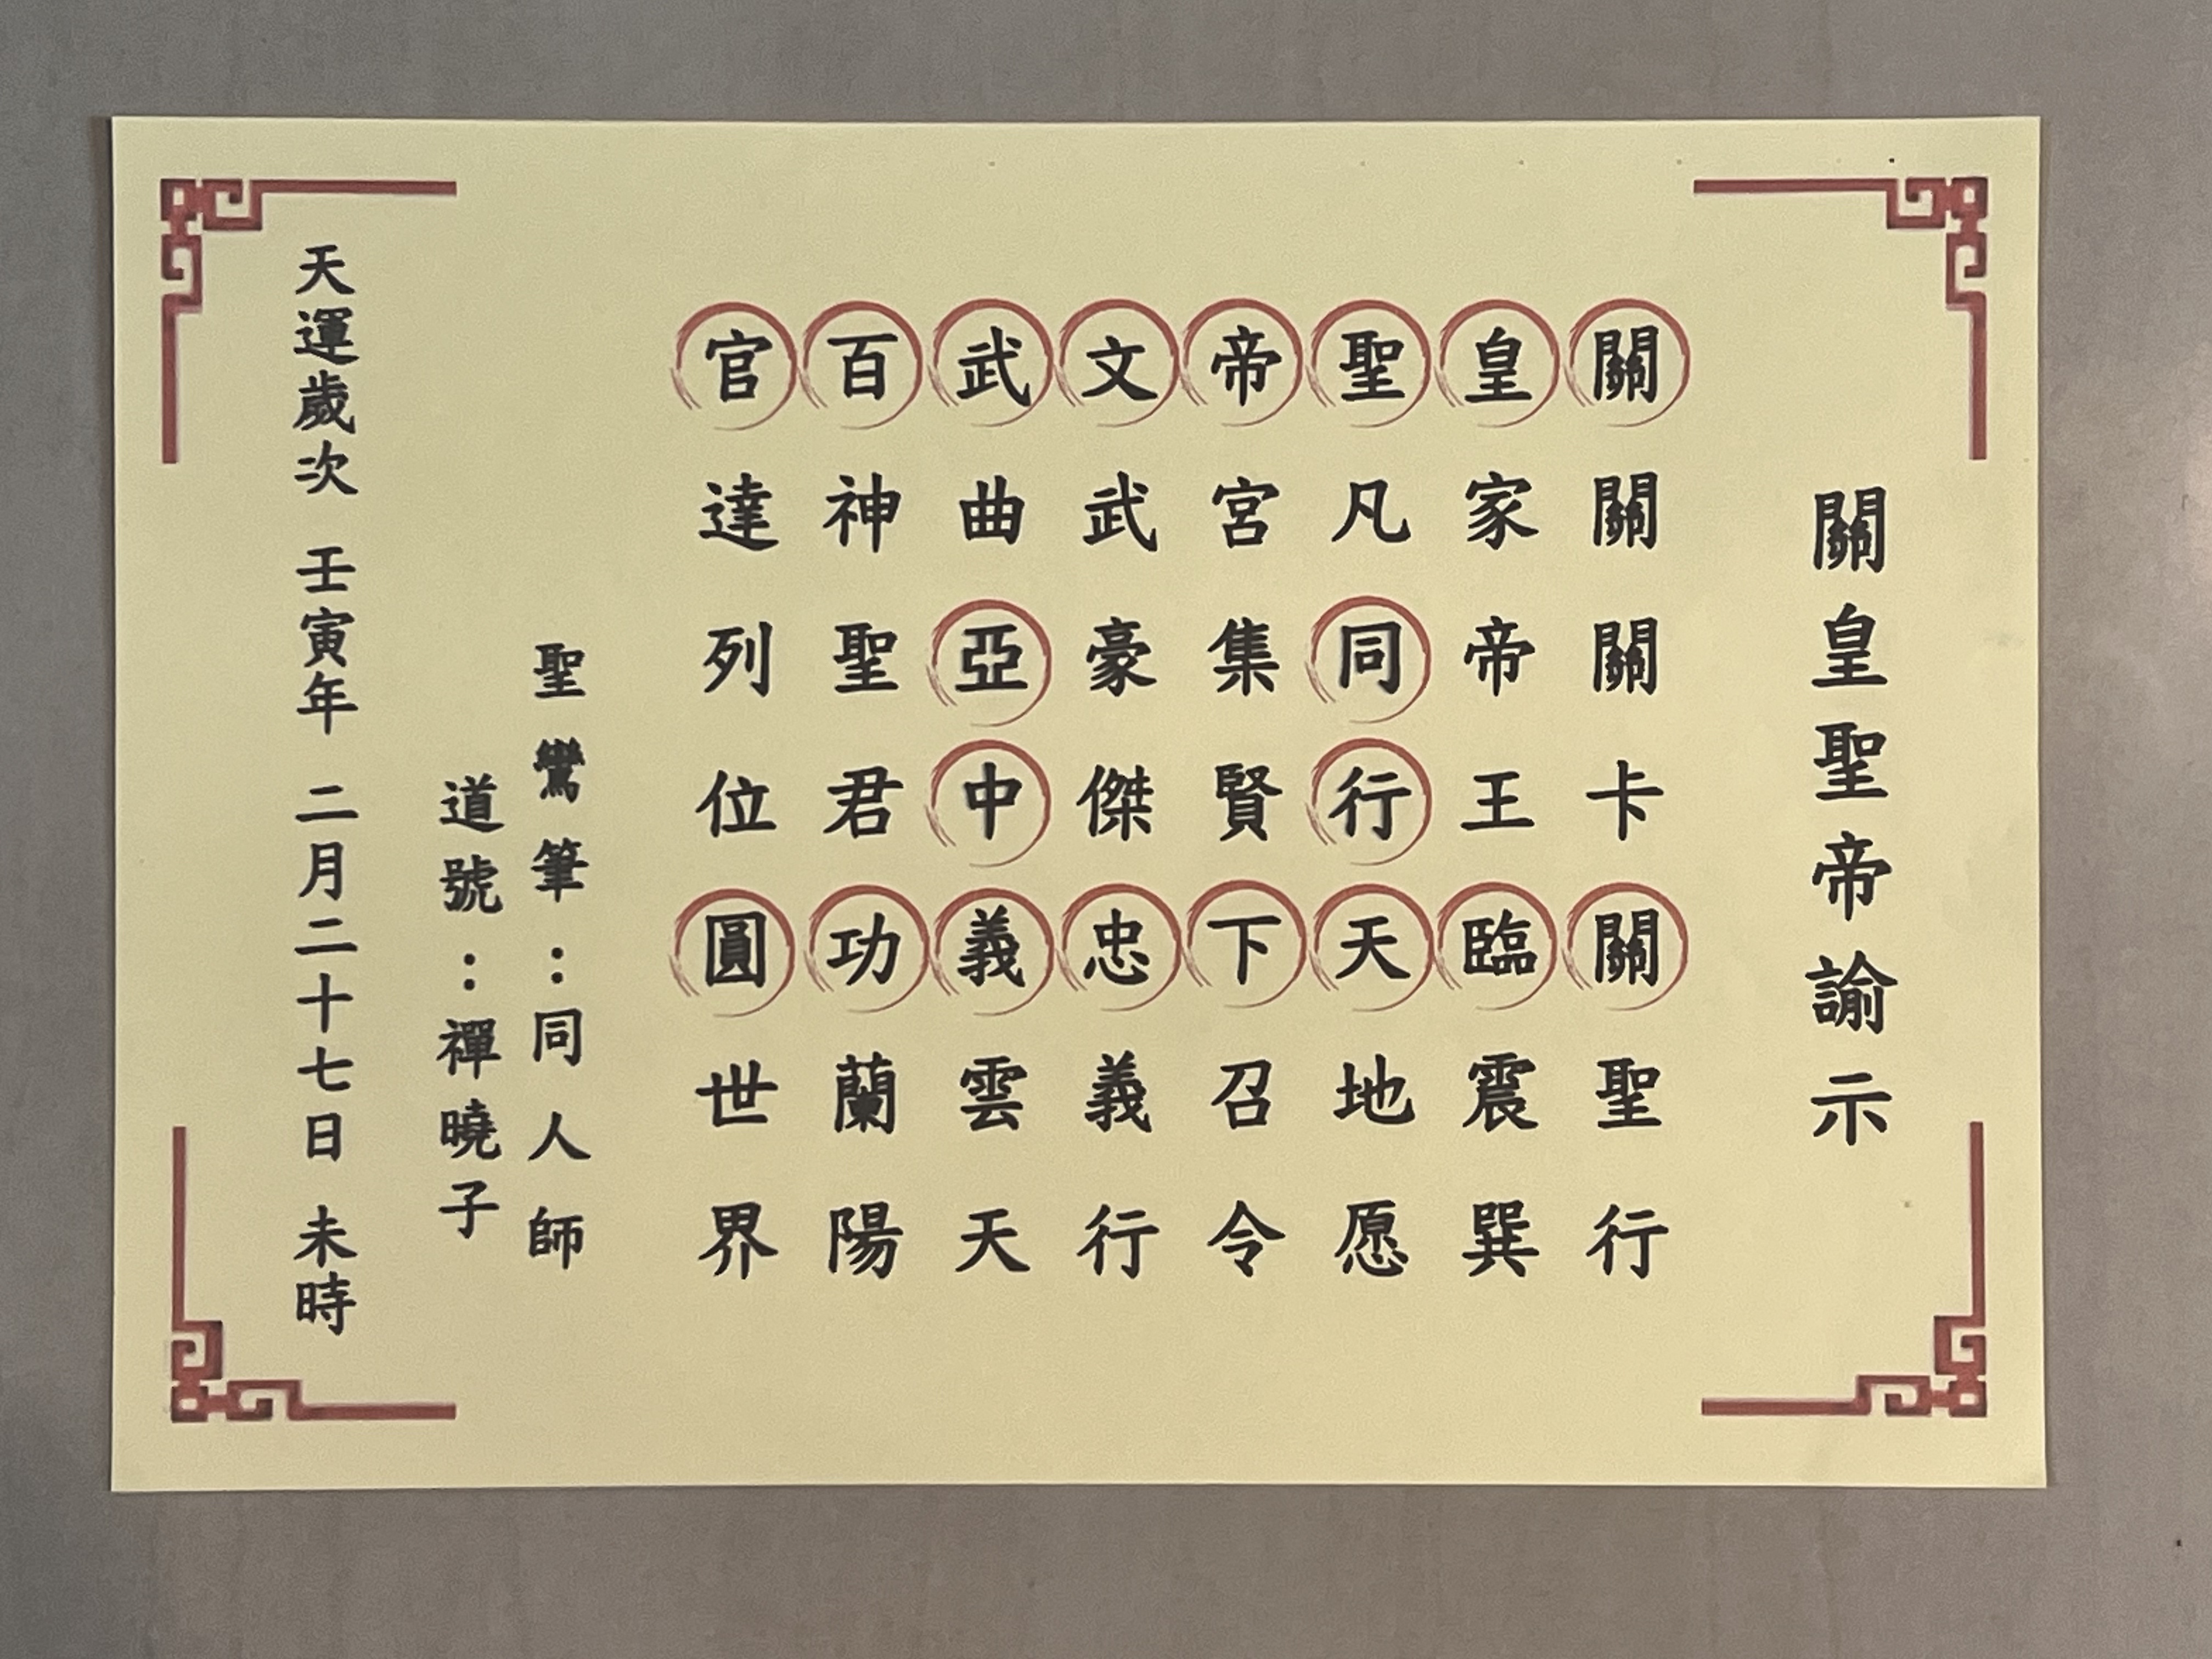 關皇聖帝諭示
關關關卡關聖行
皇家帝王臨震巽
聖凡同行天地愿
帝宮集賢下召令
文武豪傑忠義行
武曲亞中義雲天
百神聖君功蘭陽
官達列位圓世界
聖鸞筆：同人師
道號：禪曉子
天運歲次 壬寅年 二月二十七日 未時